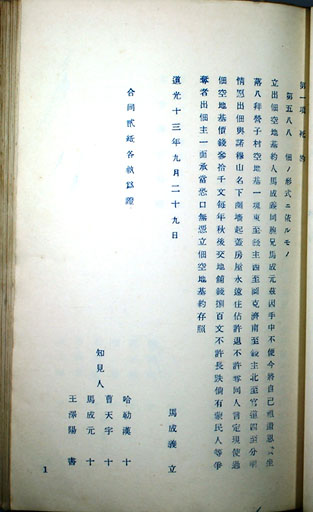 第一項 死 約
第五八八 佃ノ形式ニ依ルモノ
立出佃空地基約人馬成義同胞兄馬成元茲因手中不便今將自己祖遺恩
蓋八拜營子村空地基一塊東至錢主西至圖克濟南至錢主北至官道四至分明
情愿出佃與諾穆山名下南墻起蓋房屋永遠住佔許退不許奪同人言定現使過
佃空地基價錢參拾千文每年秋後交地舖錢捌百文不許長跌倘有蒙民人等爭
奪者出佃主一面承當恐口無憑立佃空地基約存照
道光十三年九月二十九日 馬成義立
合同貳紙各執爲證
知見人
哈勒漢 十
曹天宇 十
馬成元 十
王澤陽 書
1